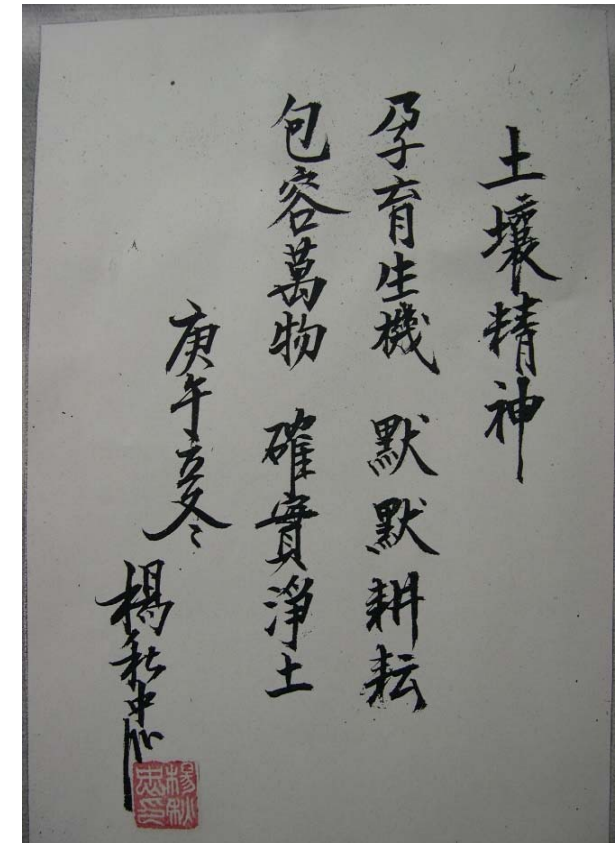 土壤精神
孕育生機 默默耕耘
包容萬物 確實淨土
庚午立冬
楊秋忠
楊秋忠印